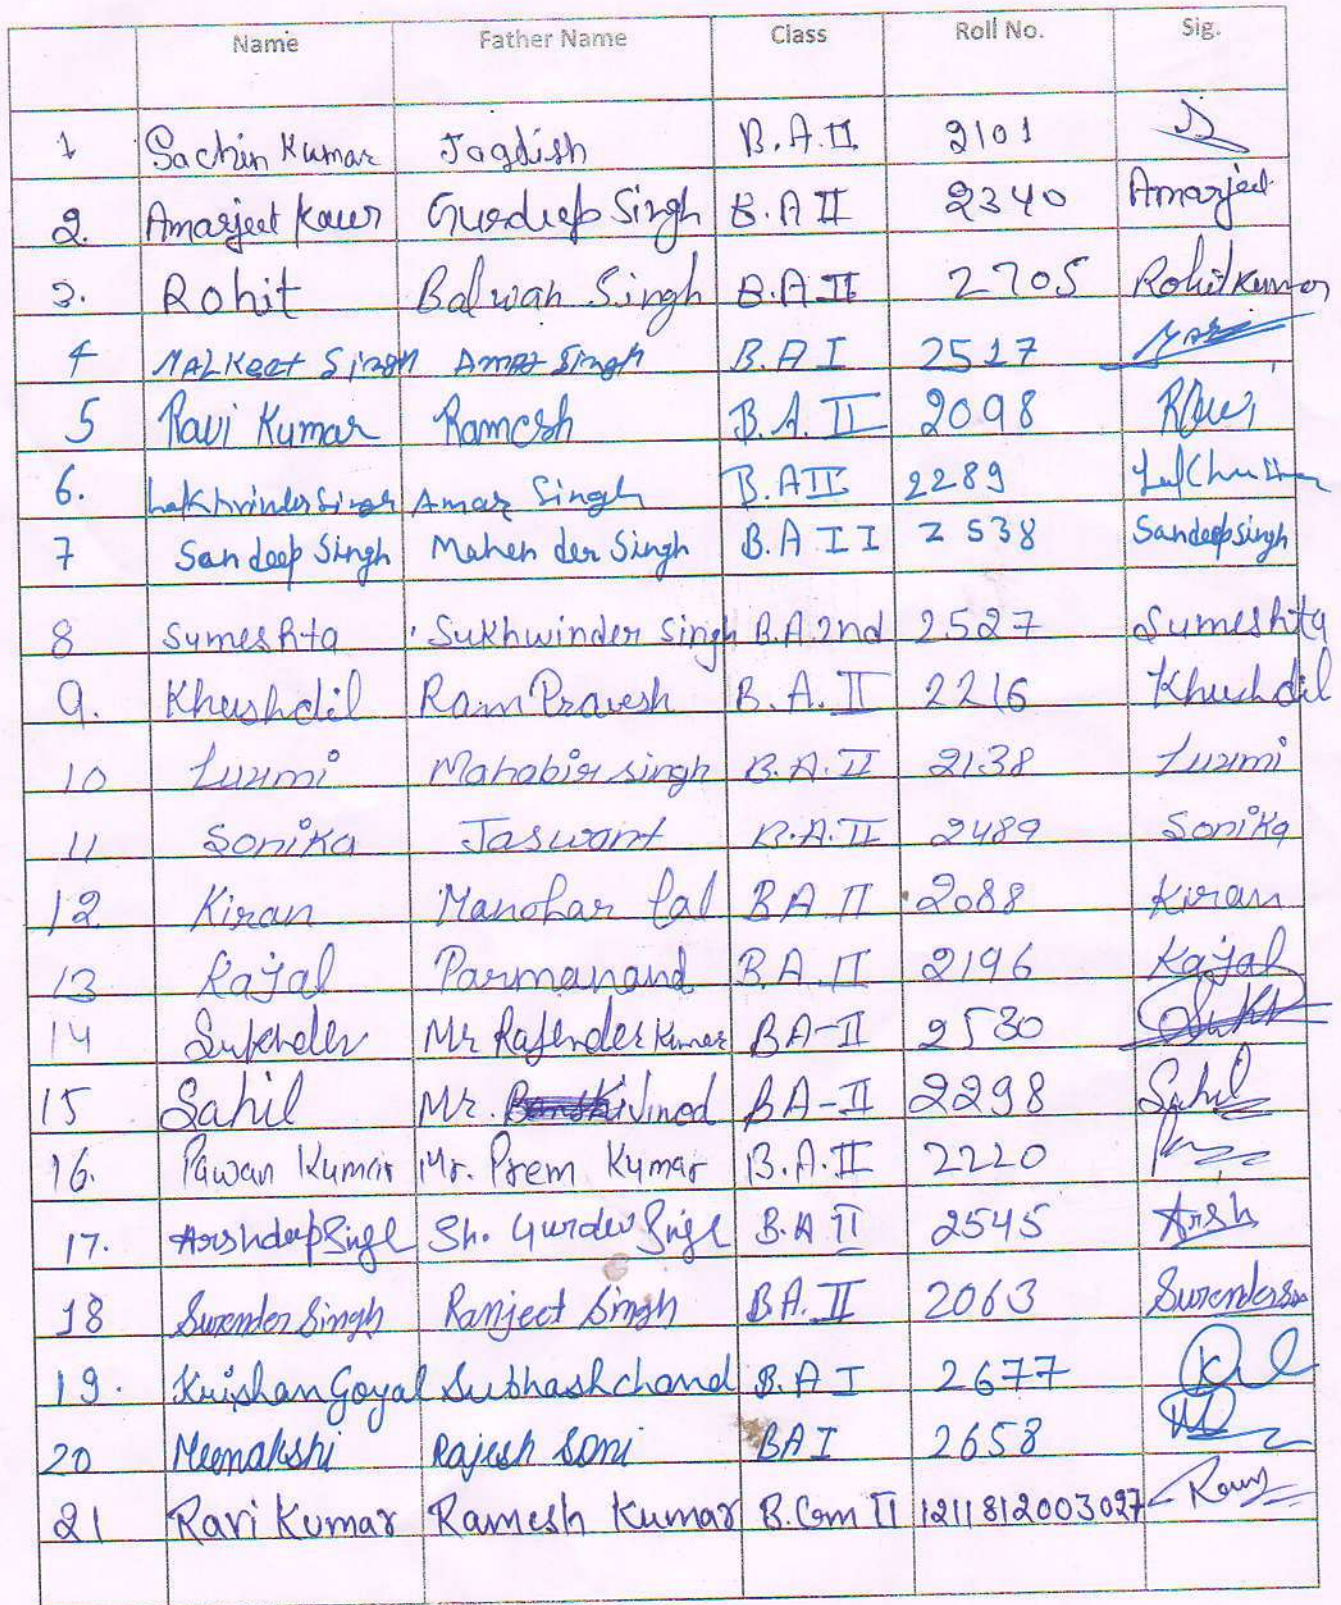 Name Father Name Class Roll No. Sig.
1 Sachin Kumar Jagdish B.A.II 2101
2. Amarjeet Kaur Gurdeep Singh B.A II 2340 Amarjeet
3. Rohit Balwan Singh B.A II 2705 Rohit Kumar
4 MALKeet Singh Amar Singh B.A I 2517
5 Ravi Kumar Ramesh B.A. II 2098 Ravi
6. Lakhvinder Singh Amar Singh B.A II 2289
7 Sandeep Singh Mahender Singh B.A II 2538 Sandeep Singh
8 Sumeshta Sukhwinder Singh B.A. 2nd 2527 Sumeshta
9. Khushdil Ram Pravesh B.A. II 2216 Khushdil
10 Luxmi Mahabir Singh B.A. II 2138 Luxmi
11 Sonika Jaswant B.A. II 2489 Sonika
12 Kiran Manohar Lal BA II 2088 Kiran
13 Kajal Parmanand B.A. II 2196 Kajal
14 Sukhdev Mr Rajender Kumar BA-II 2530 Sukh
15 Sahil Mr. Vinod BA-II 2298 Sahil
16. Pawan Kumar Mr. Prem Kumar B.A. II 2220
17. Arshdeep Singh Sh. Gurdev Singh B.A II 2545 Arsh
18 Surender Singh Ranjeet Singh B.A. II 2063 Surender
19. Krishan Goyal Subhash chand B.A I 2677
20 Meenakshi Rajesh Soni BA I 2658
21 Ravi Kumar Ramesh Kumar B.Com II 1211812003027 Ravi